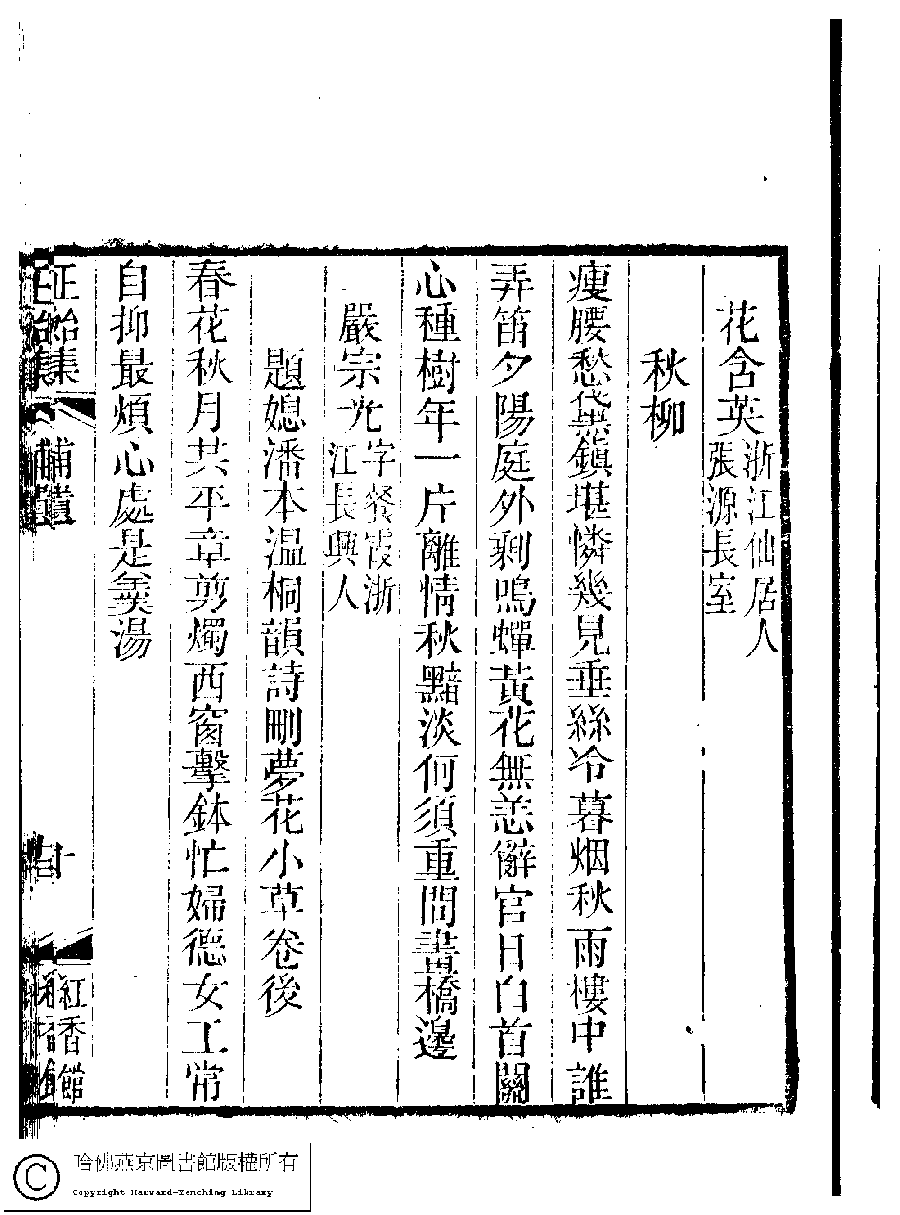 花含英浙江仙居人
張源長室
秋柳
瘦腰愁黛鎮堪憐幾見垂絲冷暮烟秋雨樓中誰
弄笛夕陽庭外剩鳴蟬黃花無恙辭官日白首關
心種樹年一片離情秋黯淡何須重問畫橋邊
嚴宗光字餐霞浙
江長興人
題媳潘本温桐韻詩刪夢花小草卷後
春花秋月共平章剪燭西窗擊鉢忙婦德女工常
自抑最煩心處是羹湯
正始集 補遺 紅香館
哈佛燕京圖書館版權所有
Copyright Harvard-Yenching Library